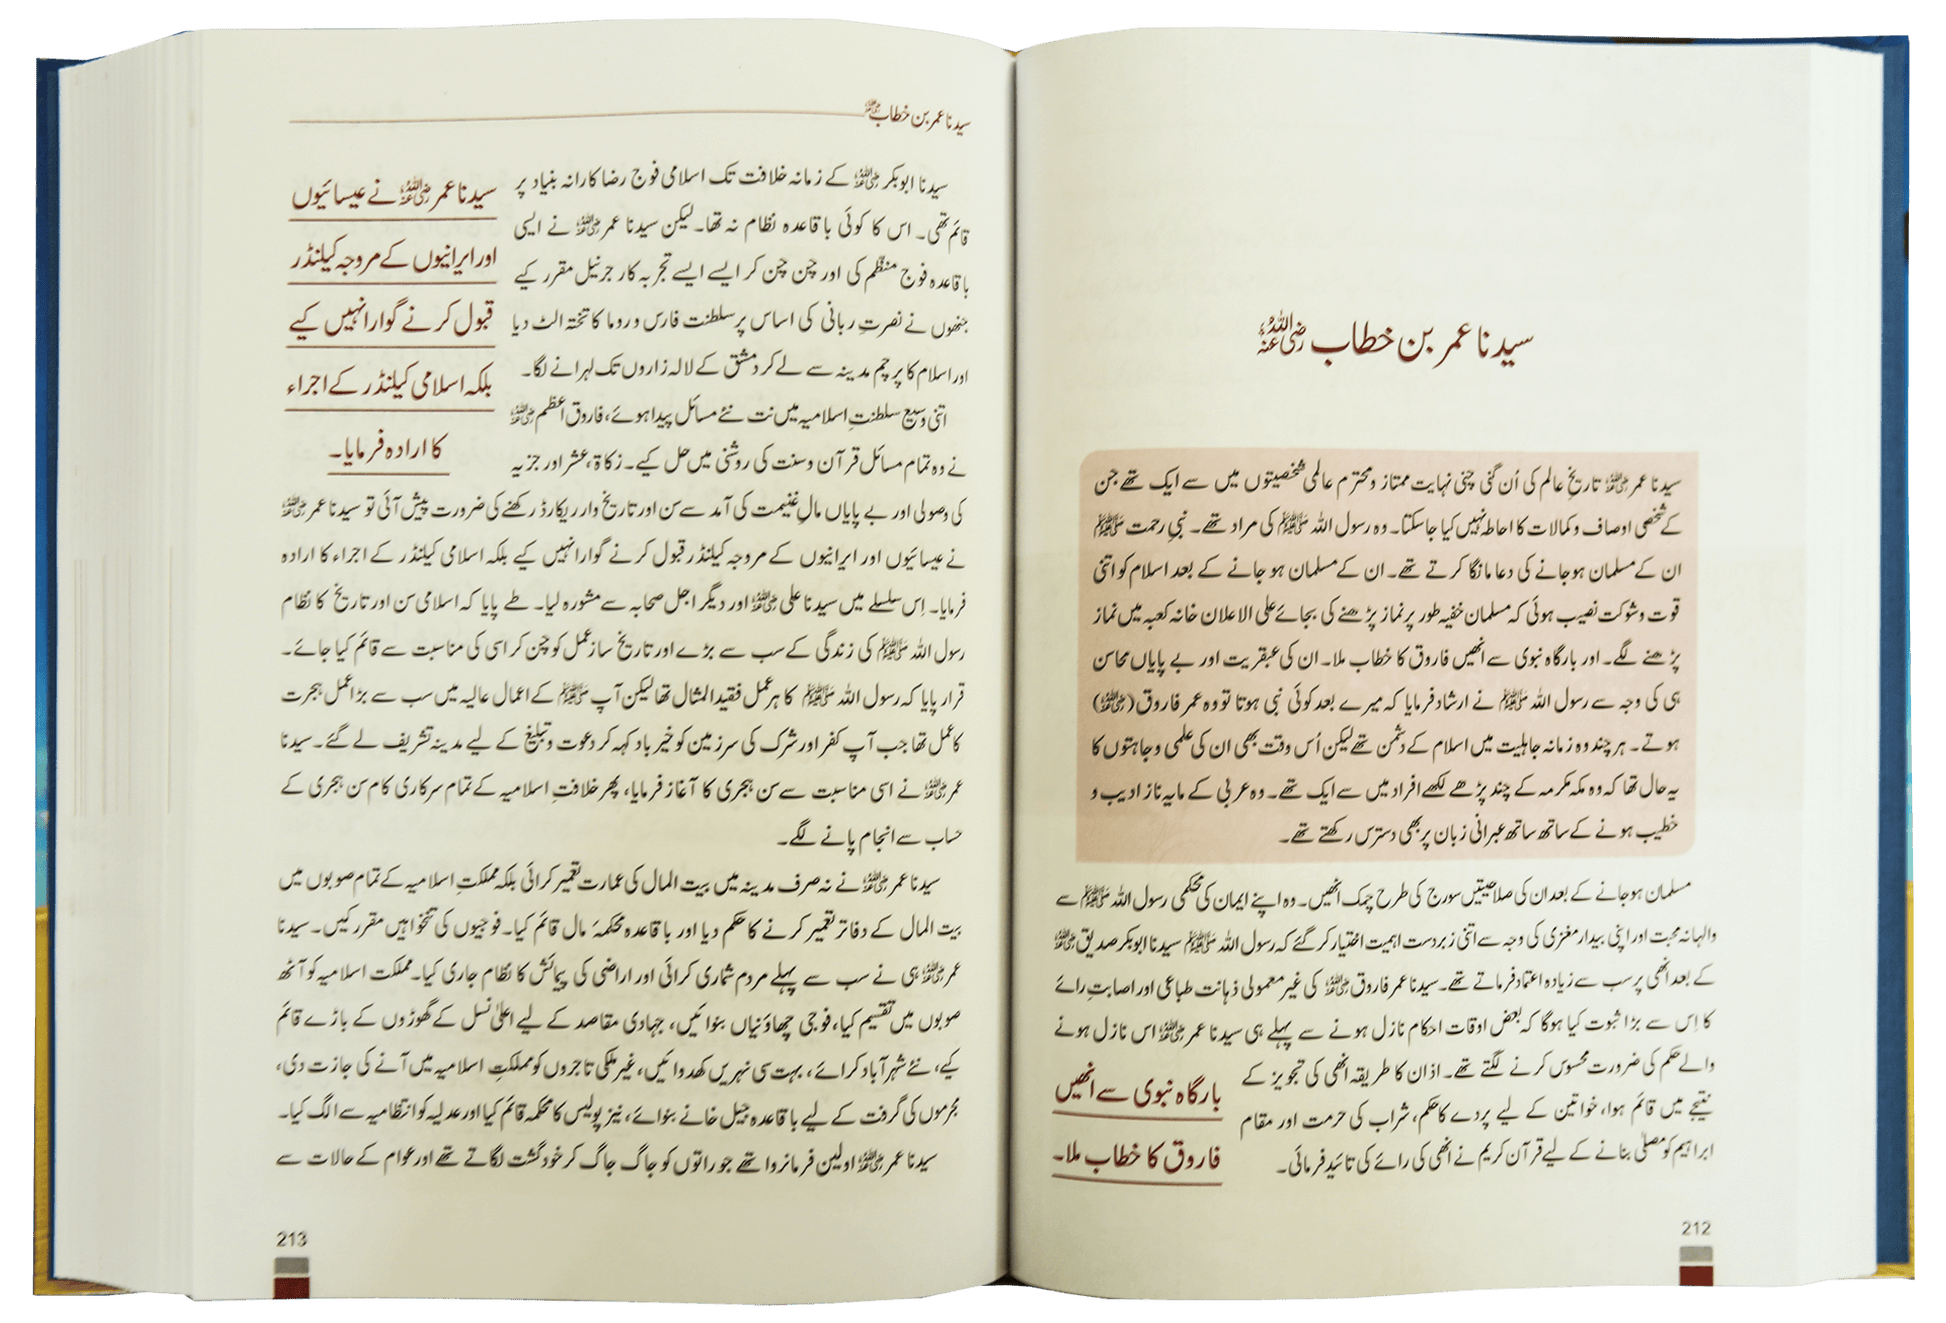 سیدنا عمر بن خطاب رضی اللہ عنہ
سیدنا عمر رضی اللہ عنہ تاریخِ عالم کی اُن گنی چنی نہایت ممتاز و محترم عالمی شخصیتوں میں سے ایک تھے جن
کے شخصی اوصاف و کمالات کا احاطہ نہیں کیا جا سکتا۔ وہ رسول اللہ ﷺ کی مراد تھے۔ نبیِ رحمت ﷺ
ان کے مسلمان ہوجانے کی دعا مانگا کرتے تھے۔ ان کے مسلمان ہو جانے کے بعد اسلام کو اتنی
قوت و شوکت نصیب ہوئی کہ مسلمان خفیہ طور پر نماز پڑھنے کی بجائے علی الاعلان خانہ کعبہ میں نماز
پڑھنے لگے۔ اور بارگاہ نبوی سے انھیں فاروق کا خطاب ملا۔ ان کی عبقریت اور بے پایاں محاسن
ہی کی وجہ سے رسول اللہ ﷺ نے ارشاد فرمایا کہ میرے بعد کوئی نبی ہوتا تو وہ عمر فاروق (رضی اللہ عنہ)
ہوتے۔ ہر چند وہ زمانہ جاہلیت میں اسلام کے دشمن تھے لیکن اُس وقت بھی ان کی علمی وجاہتوں کا
یہ حال تھا کہ وہ مکہ مکرمہ کے چند پڑھے لکھے افراد میں سے ایک تھے۔ وہ عربی کے مایہ ناز ادیب و
خطیب ہونے کے ساتھ ساتھ عبرانی زبان پر بھی دسترس رکھتے تھے۔
مسلمان ہو جانے کے بعد ان کی صلاحیتیں سورج کی طرح چمک اٹھیں۔ وہ اپنے ایمان کی محکمی رسول اللہ ﷺ سے
والہانہ محبت اور اپنی بیدار مغزی کی وجہ سے اتنی زبردست اہمیت اختیار کر گئے کہ رسول اللہ ﷺ سیدنا ابوبکر صدیق رضی اللہ عنہ
کے بعد انھی پر سب سے زیادہ اعتماد فرماتے تھے۔ سیدنا عمر فاروق رضی اللہ عنہ کی غیر معمولی ذہانت طباعی اور اصابتِ رائے
کا اِس سے بڑا ثبوت کیا ہوگا کہ بعض اوقات احکام نازل ہونے سے پہلے ہی سیدنا عمر رضی اللہ عنہ اس نازل ہونے
والے حکم کی ضرورت محسوس کرنے لگتے تھے۔ اذان کا طریقہ انھی کی تجویز کے
نتیجے میں قائم ہوا، خواتین کے لیے پردے کا حکم، شراب کی حرمت اور مقام
ابراہیم کو مصلیٰ بنانے کے لیے قرآن کریم نے انھی کی رائے کی تائید فرمائی۔
بارگاہ نبوی سے انھیں
فاروق کا خطاب ملا۔
212
سیدنا عمر بن خطاب رضی اللہ عنہ
سیدنا ابوبکر رضی اللہ عنہ کے زمانہ خلافت تک اسلامی فوج رضا کارانہ بنیاد پر
قائم تھی۔ اس کا کوئی باقاعدہ نظام نہ تھا۔ لیکن سیدنا عمر رضی اللہ عنہ نے ایسی
باقاعدہ فوج منظّم کی اور چن چن کر ایسے ایسے تجربہ کار جرنیل مقرر کیے
جنھوں نے نصرتِ ربانی کی اساس پر سلطنت فارس و روما کا تختہ الٹ دیا
اور اسلام کا پرچم مدینہ سے لے کر دمشق کے لالہ زاروں تک لہرانے لگا۔
اتنی وسیع سلطنتِ اسلامیہ میں نت نئے مسائل پیدا ہوئے، فاروق اعظم رضی اللہ عنہ
نے وہ تمام مسائل قرآن و سنت کی روشنی میں حل کیے۔ زکاۃ، عشر اور جزیہ
سیدنا عمر رضی اللہ عنہ نے عیسائیوں
اور ایرانیوں کے مروجہ کیلنڈر
قبول کرنے گوارا نہیں کیے
بلکہ اسلامی کیلنڈر کے اجراء
کا ارادہ فرمایا۔
کی وصولی اور بے پایاں مالِ غنیمت کی آمد سے سن اور تاریخ وار ریکارڈ رکھنے کی ضرورت پیش آئی تو سیدنا عمر رضی اللہ عنہ
نے عیسائیوں اور ایرانیوں کے مروجہ کیلنڈر قبول کرنے گوارا نہیں کیے بلکہ اسلامی کیلنڈر کے اجراء کا ارادہ
فرمایا۔ اِس سلسلے میں سیدنا علی رضی اللہ عنہ اور دیگر اجل صحابہ سے مشورہ لیا۔ طے پایا کہ اسلامی سن اور تاریخ کا نظام
رسول اللہ ﷺ کی زندگی کے سب سے بڑے اور تاریخ ساز عمل کو چن کر اسی کی مناسبت سے قائم کیا جائے۔
قرار پایا کہ رسول اللہ ﷺ کا ہر عمل فقید المثال تھا لیکن آپ ﷺ کے اعمال عالیہ میں سب سے بڑا عمل ہجرت
کا عمل تھا جب آپ کفر اور شرک کی سرزمین کو خیر باد کہہ کر دعوت و تبلیغ کے لیے مدینہ تشریف لے گئے۔ سیدنا
عمر رضی اللہ عنہ نے اسی مناسبت سے سن ہجری کا آغاز فرمایا، پھر خلافتِ اسلامیہ کے تمام سرکاری کام سن ہجری کے
حساب سے انجام پانے لگے۔
سیدنا عمر رضی اللہ عنہ نے نہ صرف مدینہ میں بیت المال کی عمارت تعمیر کرائی بلکہ مملکتِ اسلامیہ کے تمام صوبوں میں
بیت المال کے دفاتر تعمیر کرنے کا حکم دیا اور باقاعدہ محکمۂ مال قائم کیا۔ فوجیوں کی تنخواہیں مقرر کیں۔ سیدنا
عمر رضی اللہ عنہ ہی نے سب سے پہلے مردم شماری کرائی اور اراضی کی پیمائش کا نظام جاری کیا۔ مملکت اسلامیہ کو آٹھ
صوبوں میں تقسیم کیا، فوجی چھاؤنیاں بنوائیں، جہادی مقاصد کے لیے اعلیٰ نسل کے گھوڑوں کے باڑے قائم
کیے، نئے شہر آباد کرائے، بہت سی نہریں کھدوائیں، غیر ملکی تاجروں کو مملکتِ اسلامیہ میں آنے کی جازت دی،
مجرموں کی گرفت کے لیے باقاعدہ جیل خانے بنوائے، نیز پولیس کا محکمہ قائم کیا اور عدلیہ کو انتظامیہ سے الگ کیا۔
سیدنا عمر رضی اللہ عنہ اولین فرمانروا تھے جو راتوں کو جاگ جاگ کر خود گشت لگاتے تھے اور عوام کے حالات سے
213